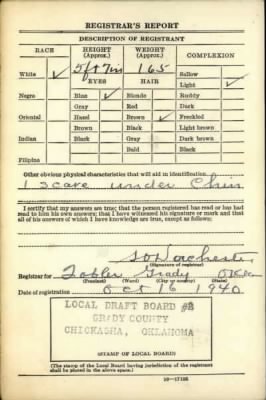 REGISTRAR'S REPORT
DESCRIPTION OF REGISTRANT
RACE HEIGHT (Approx.) WEIGHT (Approx.) COMPLEXION
White ✓ 5 ft 7 in 165 Sallow
EYES HAIR Light ✓
Negro Blue ✓ Blonde Ruddy
Gray Red Dark
Oriental Hazel Brown ✓ Freckled
Brown Black Light brown
Indian Black Gray Dark brown
Bald Black
Filipino
Other obvious physical characteristics that will aid in identification
1 Scare under Chin
I certify that my answers are true; that the person registered has read or has
had read to him his own answers; that I have witnessed his signature or mark and that
all of his answers of which I have knowledge are true, except as follows:
Dorchester
(Signature of registrar)
Registrar for Tabler Grady Okla
(Precinct) (Ward) (City or county) (State)
Date of registration Oct 16 1940
LOCAL DRAFT BOARD #2
GRADY COUNTY
CHICKASHA, OKLAHOMA
(STAMP OF LOCAL BOARD)
(The stamp of the Local Board having jurisdiction of the registrant
shall be placed in the above space.)
16—17105